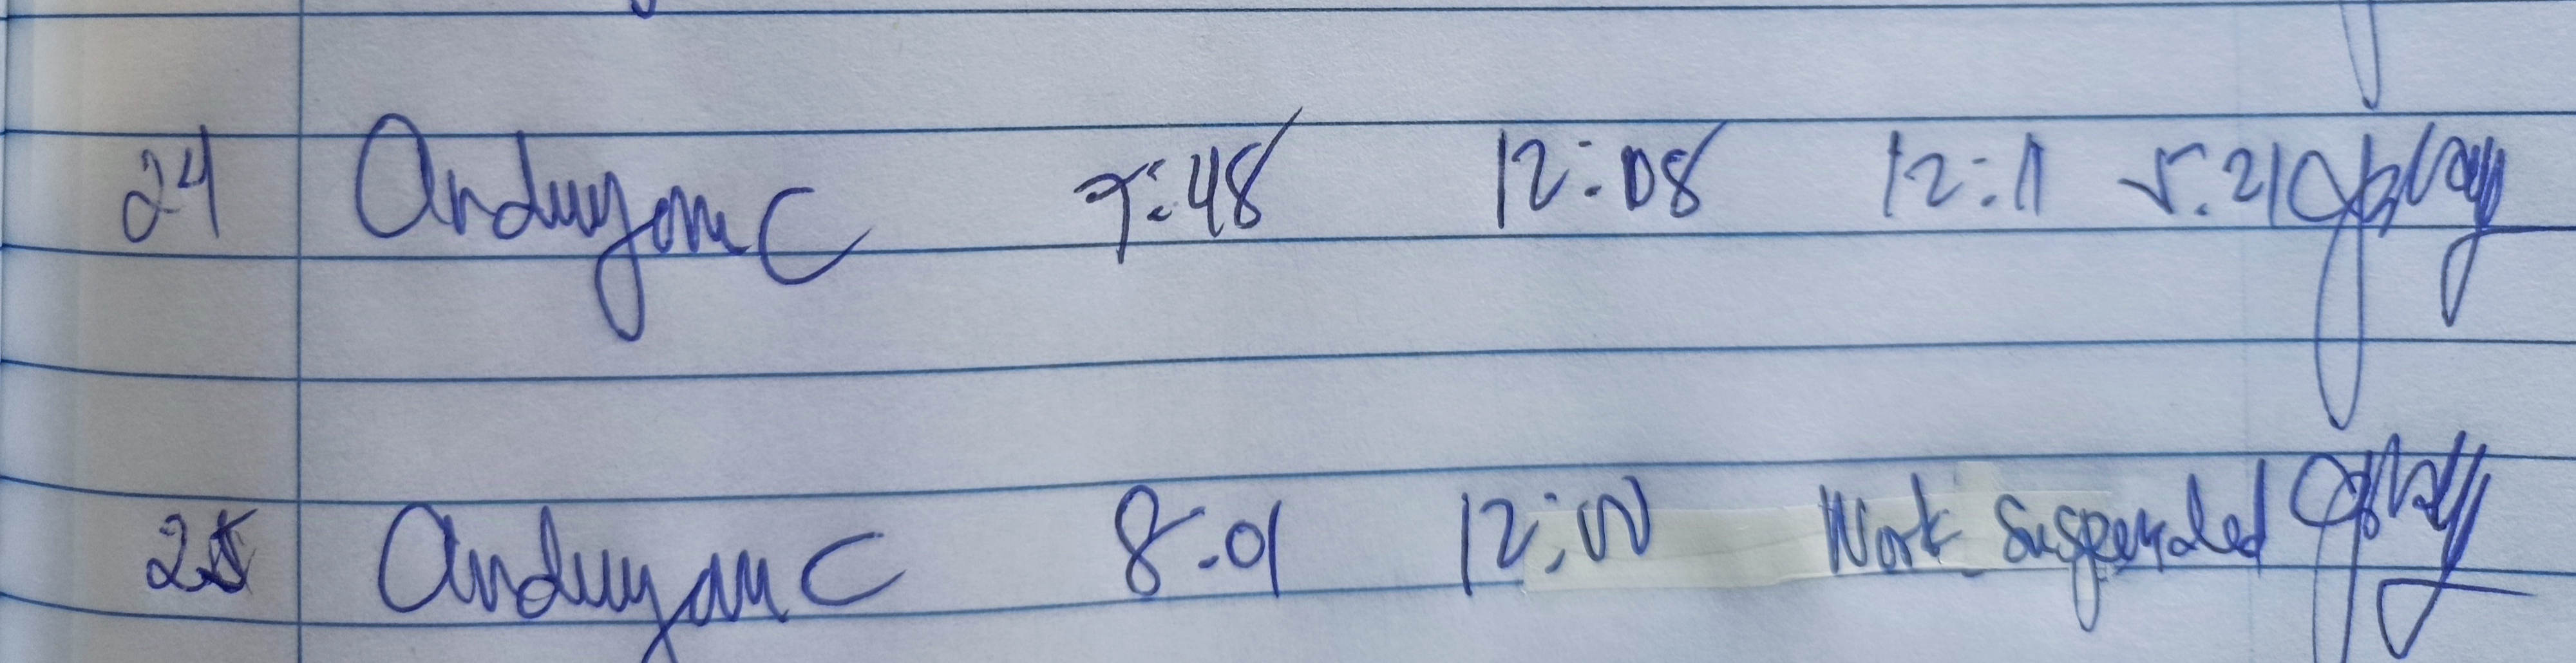 24 Anduyan C 7:48 12:08 12:11 5:21
25 Anduyan C 8:01 12:00 Work Suspended